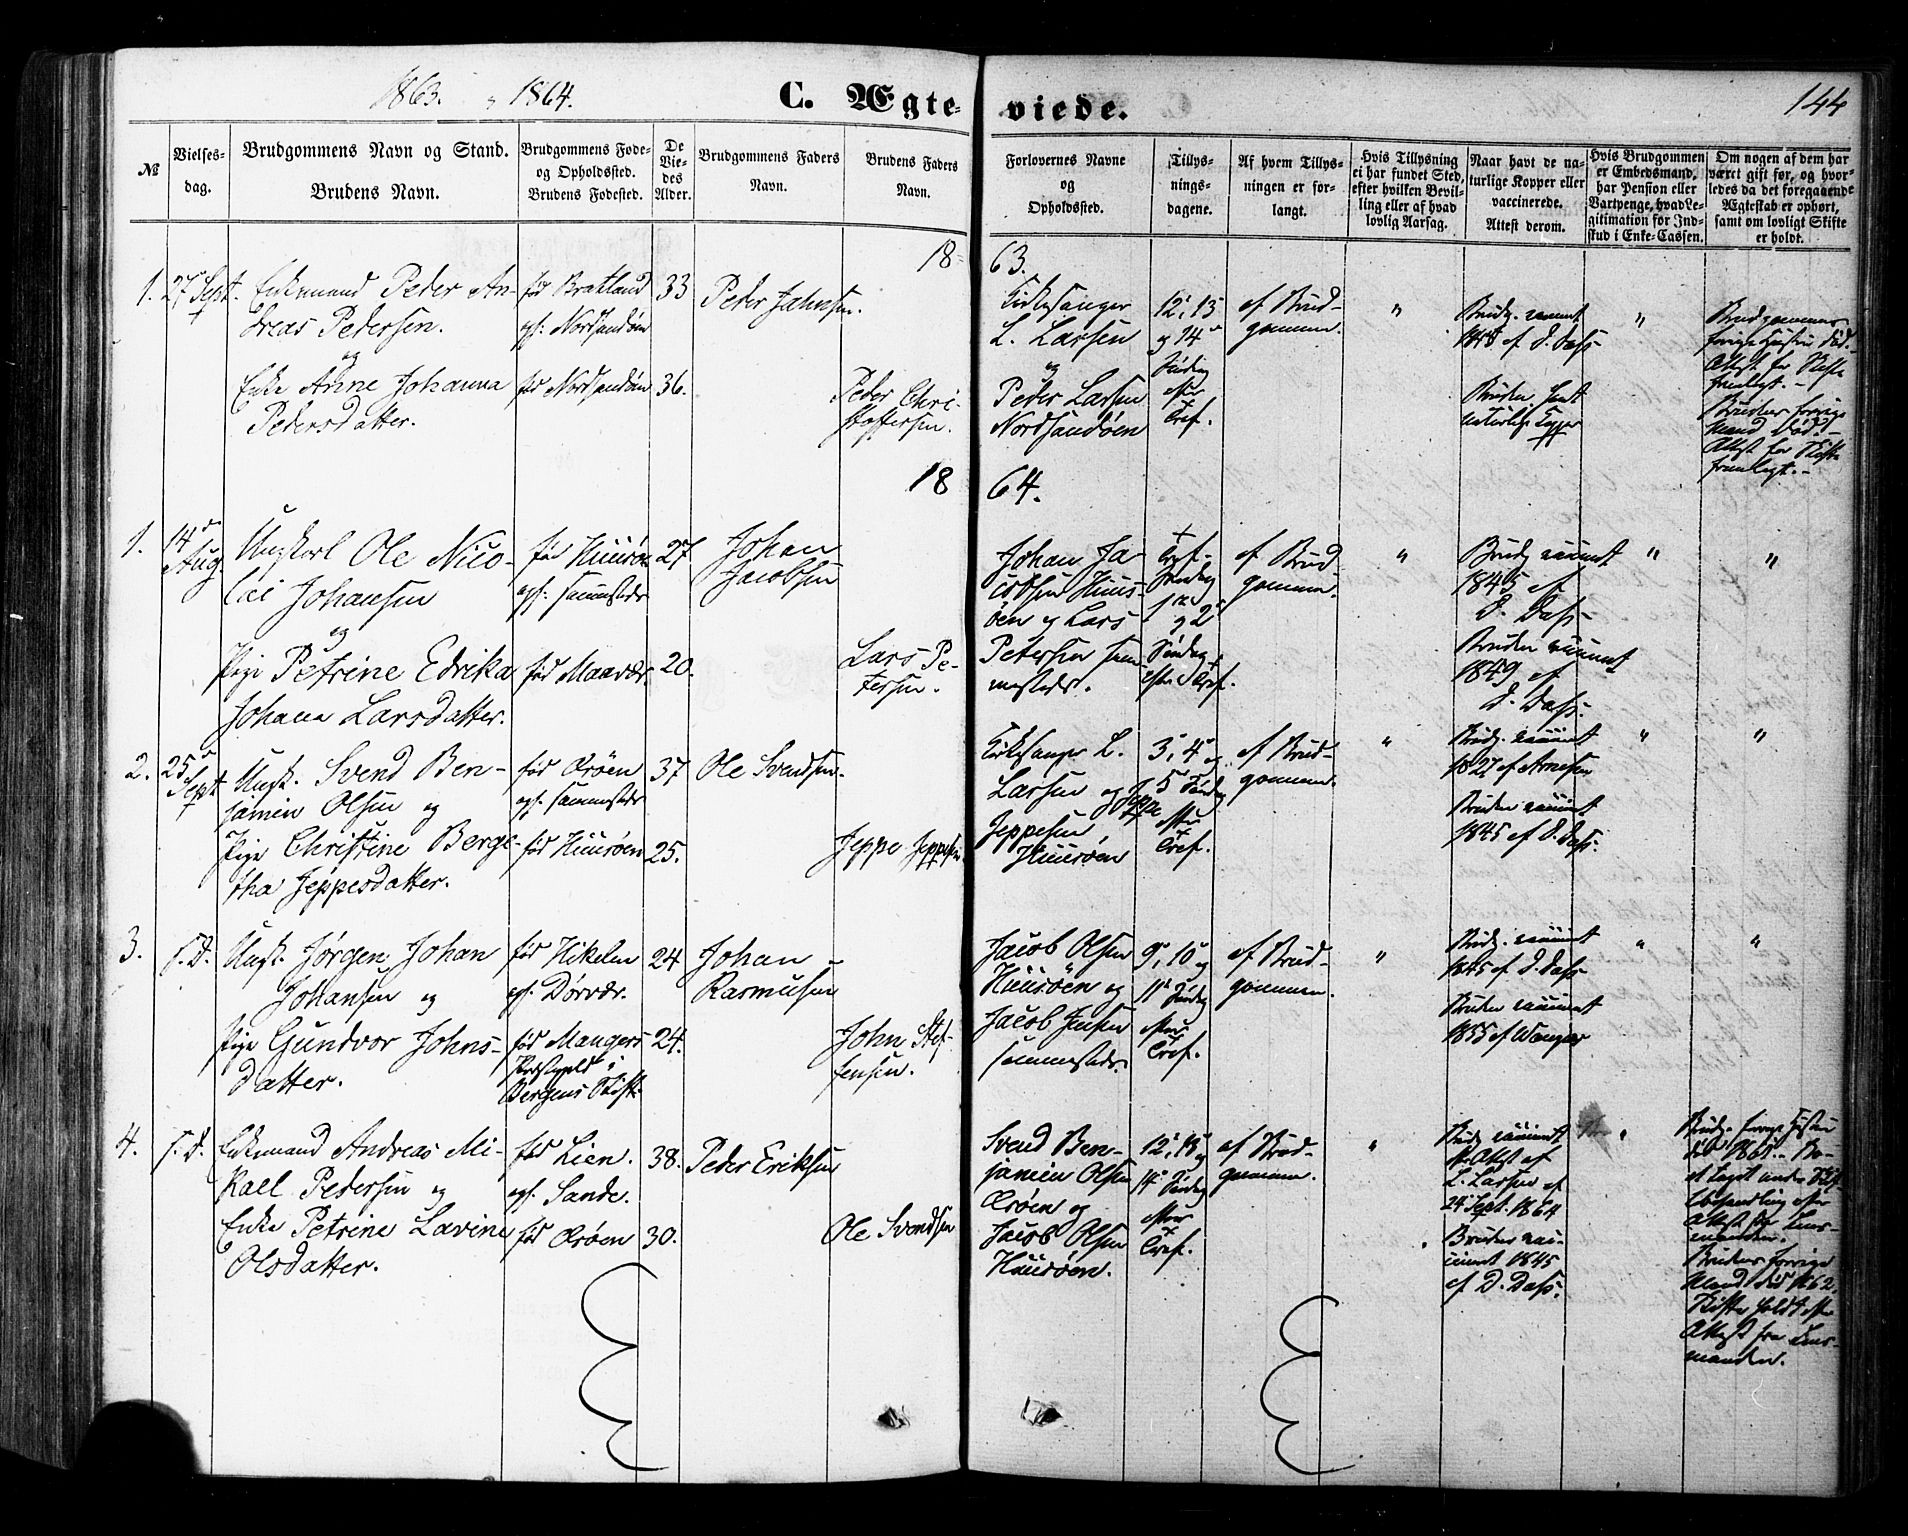 1863. " 1864.
C. Ægte-
viede.
144
№
Vielses-
dag.
Brudgommens Navn og Stand.
Brudens Navn.
Brudgommens Føde-
og Opholdssted.
Brudens Fødested.
De
Vie-
des
Alder.
Brudgommens Faders
Navn.
Brudens Faders
Navn.
Forlovernes Navne
og
Opholdssted.
Tillys-
nings-
dagene.
Af hvem Tillys-
ningen er for-
langt.
Hvis Tillysning
ei har fundet Sted,
efter hvilken Bevil-
ling eller af hvad
lovlig Aarsag.
Naar havt de na-
turlige Kopper eller
vaccinerede.
Attest derom.
Hvis Brudgommen
er Embedsmand,
har Pension eller
Vartpenge, hvad Le-
gitimation for Ind-
skud i Enke-Cassen.
Om nogen af dem har
været gift før, og hvor-
ledes da det foregaaende
Ægteskab er ophørt,
samt om lovligt Skifte
er holdt.
18-
63.
1.
27 Sept.
Enkemand Peder An-
dreas Pedersen.
og
Enke Anne Johanna
Pedersdatter.
fød Bratland
opf: Nordsandøn
fød Nordsandøn
33
36.
Peder Jahnsen.
Peder Chri-
stoffersen.
Kirkesanger
L. Larsen
og
Peder Larsen
Nordsandøen
12', 13
og 14
Søndag
efter
Tref.
af Brud-
gommen.
"
Brudg. vaccint
af D. Dass
Bruden havt
naturlige Kopper
"
Brudgommens
forrige Hustru død.
Attest for Skifte
fremlagt. -
Brudens forrige
Mand død. -
Attest for Skifte
fremlagt. -
18
64.
1.
14
Aug.
Ungkarl Ole Nico-
lai Johansen
og
Pige Petrine Edrika
Johana Larsdatter.
fød Huusøn
opf: sammesteds
fød Maavær.
27
20.
Johan
Jacobsen
Lars Pe-
tersen.
Johan Ja-
cobsen Huus-
øen og Lars
Petersen sam-
mesteds.
Tref.
Søndag
1 og 2
Søndag
efter Tref.
af Brud
gommen.
"
Brudg vaccint
1845 af
D. Dass.
Bruden vaccint
1849 af
D. Dass.
"
"
2.
25
Sept
Ungk. Svend Ben-
jamin Olsen og
Pige Christine Berge-
tha Jeppesdatter.
fød Ørøen
opf: sammesteds
fød Huusøen
37
25.
Ole Svendsen.
Jeppe Jeppesen
Kirkesanger L.
Larsen og Jeppe
Jeppesen
Huusøen
3', 4' og
5 Søndag
efter
Tref.
af Brud-
gommen.
"
Brudg. vaccint
1827 af Arnesen
Bruden vaccint
1845 af D. Dass.
"
"
3.
s. D.
Ungk. Jørgen Johan
Johansen og
Pige Gundvor Johns-
datter.
fød Hikelen
opf. Dørvær.
fød Mangers
Præstegjeld i
Bergens Stift.
24
24.
Johan
Rasmusen
John Stef-
fensen.
Jacob Olsen
Huusøen og
Jacob Jensen
sammesteds.
9', 10 og
11' Søndag
efter
Tref.
af Brud-
gommen.
"
Brudg. vaccint
1845 af D. Dass
Bruden vaccint
1855 af Wanger
"
"
4.
s. D.
Enkemand Andreas Mi-
kael Pedersen og
Enke Petrine Lavine
Olsdatter.
fød Lien.
opf. Sande.
fød Ørøen
38.
30.
Peder Eriksen
Ole Svendsen
Svend Ben-
jamin Olsen
Ørøen og
Jacob Olsen
Huusøen.
12', 13' og
14' Søndag
efter
Tref.
af Brud-
gommen.
"
Brudg vaccint
Attest af
L. Larsen af
24 Sept. 1864
Bruden vac-
cint 1845
af D. Dass.
"
Brudg. forrige Hustru
død 1861. Bo-
et taget under Skif-
tebehandling efter
Attest fra Lens-
manden.
Brudens forrige
Mand død 1862.
Skifte holdt efter
Attest fra Lens-
manden.